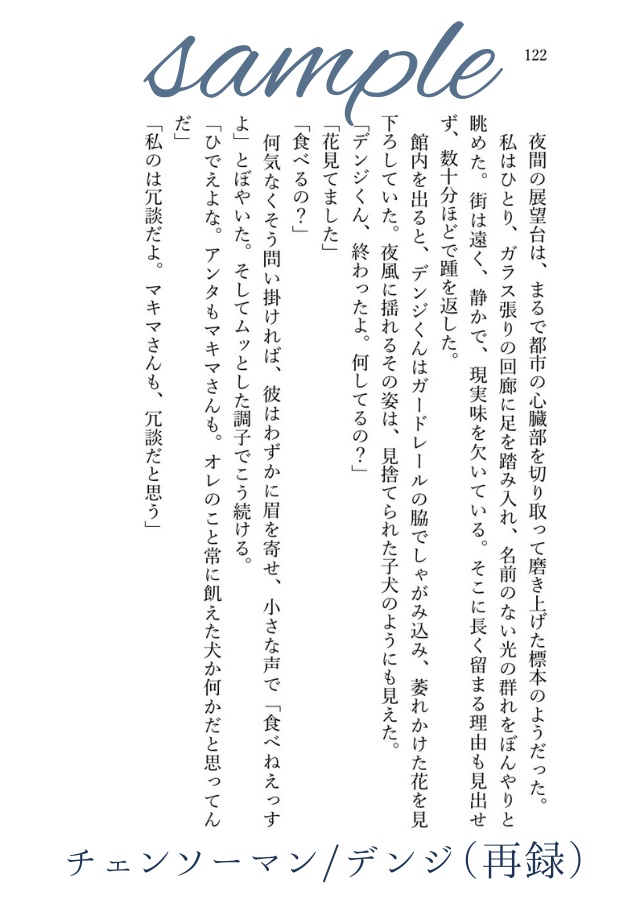 sample
122
夜間の展望台は、まるで都市の心臓部を切り取って磨き上げた標本のようだった。
私はひとり、ガラス張りの回廊に足を踏み入れ、名前のない光の群れをぼんやりと
眺めた。街は遠く、静かで、現実味を欠いている。そこに長く留まる理由も見出せ
ず、数十分ほどで踵を返した。
館内を出ると、デンジくんはガードレールの脇でしゃがみ込み、萎れかけた花を見
下ろしていた。夜風に揺れるその姿は、見捨てられた子犬のようにも見えた。
「デンジくん、終わったよ。何してるの？」
「花見てました」
「食べるの？」
何気なくそう問い掛ければ、彼はわずかに眉を寄せ、小さな声で「食べねえっす
よ」とぼやいた。そしてムッとした調子でこう続ける。
「ひでえよな。アンタもマキマさんも。オレのこと常に飢えた犬か何かだと思ってん
だ」
「私のは冗談だよ。マキマさんも、冗談だと思う」
チェンソーマン/デンジ（再録）